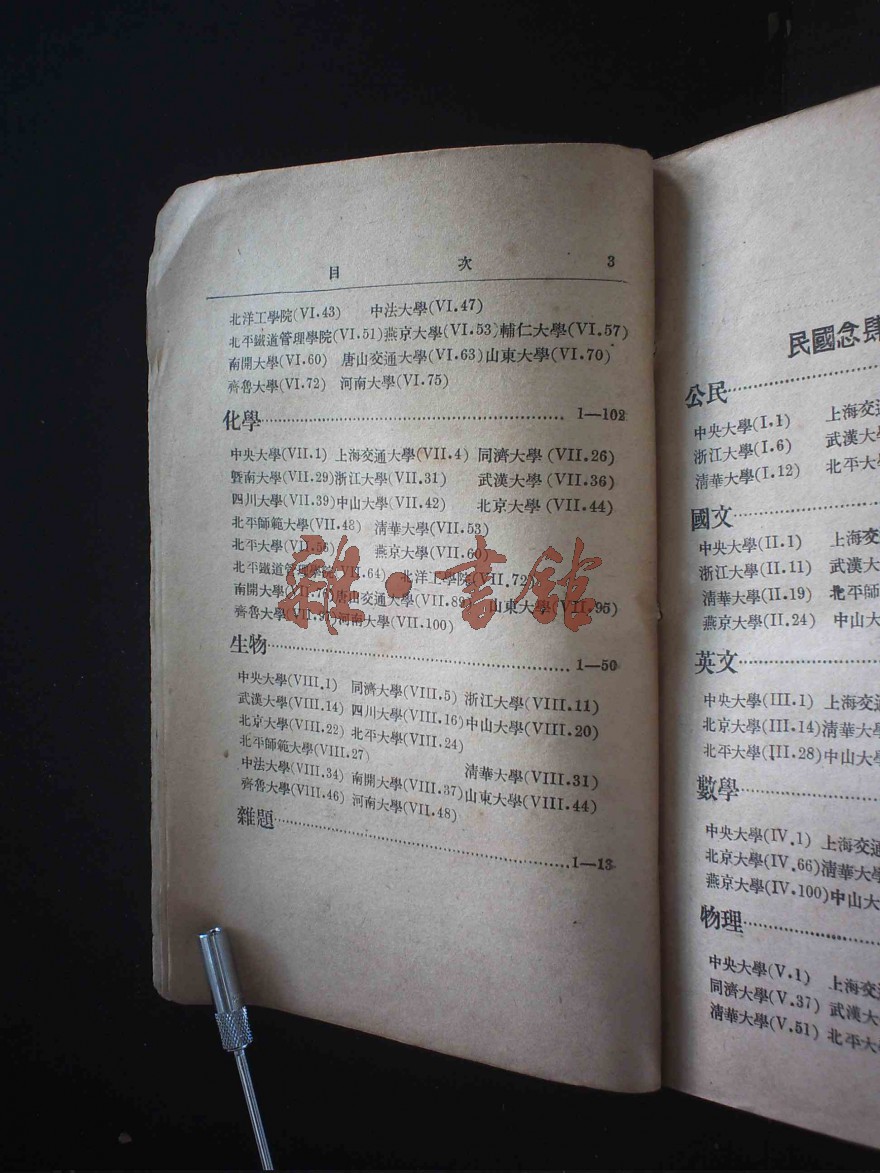 目 次 3
北洋工學院(VI.43) 中法大學(VI.47)
北平鐵道管理學院(VI.51)燕京大學(VI.53)輔仁大學(VI.57)
南開大學(VI.60) 唐山交通大學(VI.63)山東大學(VI.70)
齊魯大學(VI.72) 河南大學(VI.75)
化學 1—102
中央大學(VII.1) 上海交通大學(VII.4) 同濟大學(VII.26)
暨南大學(VII.29)浙江大學(VII.31) 武漢大學(VII.36)
四川大學(VII.39)中山大學(VII.42) 北京大學(VII.44)
北平師範大學(VII.48) 清華大學(VII.53)
北平大學(VII.56) 燕京大學(VII.60)
北平鐵道管理學院(VII.64) 北洋工學院(VII.72)
南開大學(VII.7 唐山交通大學(VII.89) 山東大學(VII.95)
齊魯大學(VII.97)河南大學(VII.100)
雜·書館
生物 1—50
中央大學(VIII.1) 同濟大學(VIII.5) 浙江大學(VIII.11)
武漢大學(VIII.14) 四川大學(VIII.16)中山大學(VIII.20)
北京大學(VIII.22) 北平大學(VIII.24)
北平師範大學(VIII.27) 清華大學(VIII.31)
中法大學(VIII.34) 南開大學(VIII.37)山東大學(VIII.44)
齊魯大學(VIII.46) 河南大學(VII.48)
雜題 1—13
民國念肆
公民
中央大學(I.1) 上海交通
浙江大學(I.6) 武漢大學
清華大學(I.12) 北平大
國文
中央大學(II.1) 上海交
浙江大學(II.11) 武漢大
清華大學(II.19) 北平師
燕京大學(II.24) 中山大
英文
中央大學(III.1) 上海交通
北京大學(III.14)清華大學
北平大學(III.28)中山大
數學
中央大學(IV.1) 上海交通
北京大學(IV.66)清華大學
燕京大學(IV.100)中山大
物理
中央大學(V.1) 上海交
同濟大學(V.37) 武漢大
清華大學(V.51) 北平大